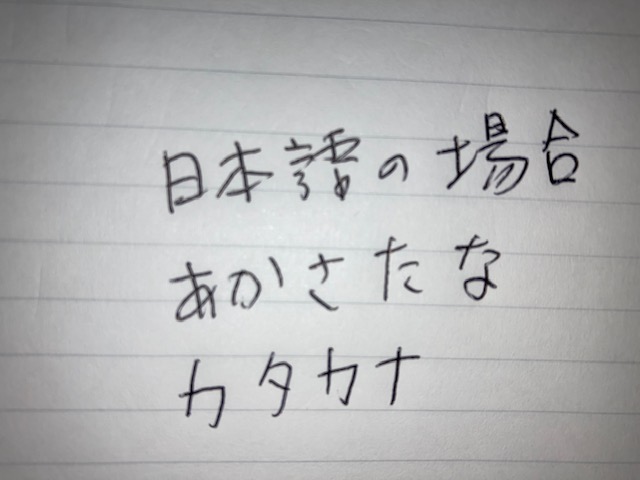 日本語の場合
あかさたな
カタカナ